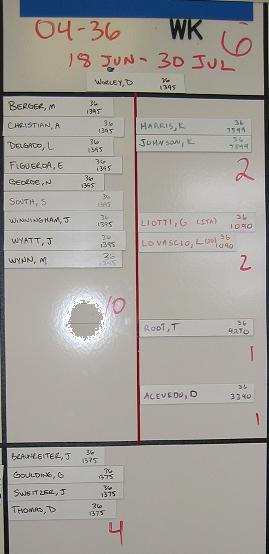 04-36 WK 6
18 JUN - 30 JUL
WORLEY, D 36 1395
BERGER, M 36 1395
CHRISTIAN, A 36 1395
DELGADO, L 36 1395
FIGUEROA, E 36 1395
GEORGE, N 36 1395
SOUTH, S 36 1395
WINNINGHAM, J 36 1395
WYATT, J 36 1395
WYNN, M 36 1395
10
HARRIS, K 36
JOHNSON, K 36
2
LIOTTI, G (STA) 36 1090
LOVASCIO, L 36 1090
2
ROOT, T 36 4270
1
ACEVEDO, D 36 3340
1
BRAUNREITER, J 36 1375
GOULDING, G 36 1375
SWEITZER, J 36 1375
THOMAS, D 36 1375
4